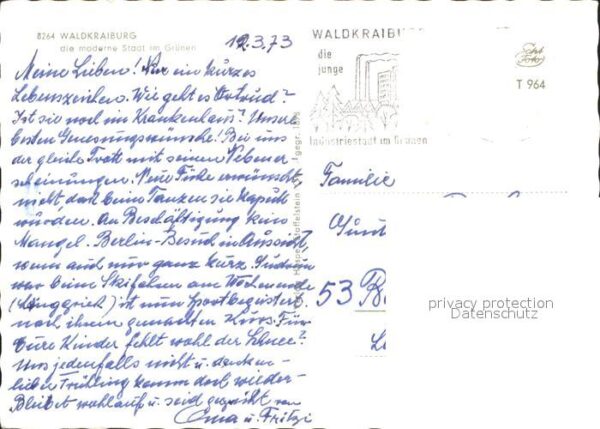 8264 WALDKRAIBURG
die moderne Stadt im Grünen
12.3.73
Meine Lieben! Nur ein kurzes
Lebenszeichen. Wie geht es Ortrud?
Ist sie noch im Krankenhaus? Unsere
besten Genesungswünsche! Bei uns
der gleiche Trott mit seinen Nebener-
scheinungen. Neue Füße erwünscht,
nicht, daß beim Tanzen sie kaputt
würden. An Beschäftigung kein
Mangel. Berlin-Besuch in Aussicht,
wenn auch nur ganz kurz. Gudrun
war beim Skifahren am Wochenende
(Lenggries) ist nun sportbegeistert
nach ihrem gemachten Kurs. Für
Eure Kinder fehlt wohl der Schnee?
Uns jedenfalls nicht u. denken-
lieber Frühling komm doch wieder-
Bleibt wohlauf u. seid gegrüßt von
Oma u. Fritzi
WALDKRAIBURG
die
junge
Industriestadt im Grünen
Foto
T 964
Familie
53
privacy protection
Datenschutz